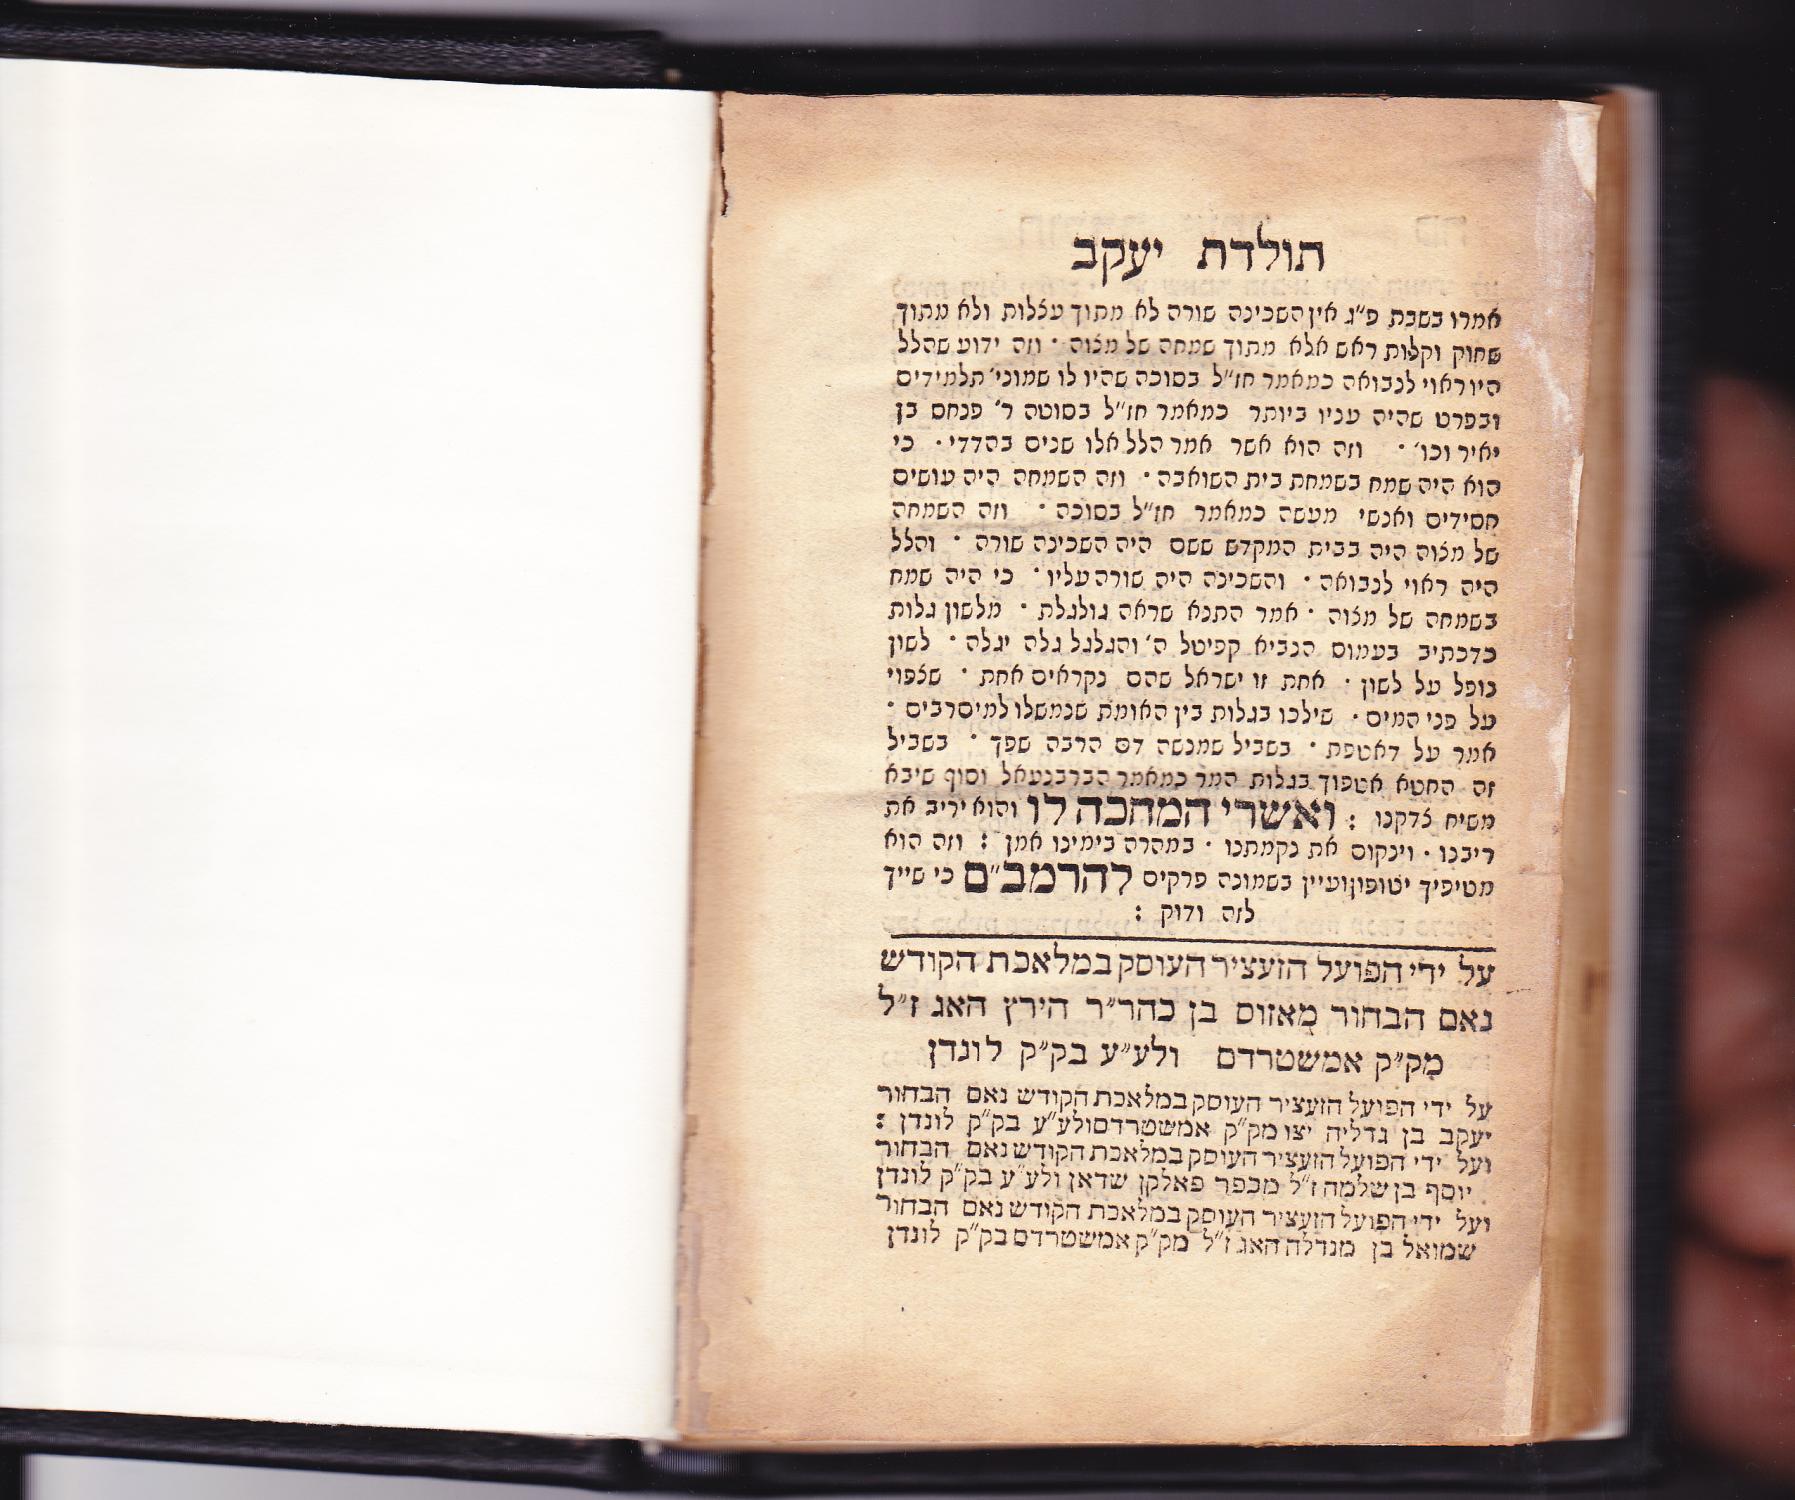 תולדת יעקב
אמרו בשבת פ״ג אין השכינה שורה לא מתוך עצלות ולא מתוך
שחוק וקלות ראש אלא מתוך שמחה של מצוה · וזה ידוע שהלל
היו ראוי לנבואה כמאמר חז״ל בסוכה שהיו לו שמוני׳ תלמידים
ובפרט שהיה עניו ביותר כמאמר חז״ל בסוטה ר׳ פנחס בן
יאיר וכו׳ · וזה הוא אשר אמר הלל אלו שנים בהדדי · כי
הוא היה שמח בשמחת בית השואבה · וזה השמחה היה עושים
חסידים ואנשי מעשה כמאמר חז״ל בסוכה · וזה השמחה
של מצוה היה בבית המקדש ששם היה השכינה שורה · והלל
היה ראוי לנבואה · והשכינה היה שורה עליו · כי היה שמח
בשמחה של מצוה · אמר התנא שראה גולגלת · מלשון גלות
כדכתיב בעמוס הנביא קפיטל ה׳ והגלגל גלה יגלה · לשון
נופל על לשון · אחת זו ישראל שהם נקראים אחת · שצפוי
על פני המים · שילכו בגלות בין האומת שנמשלו למים רבים ·
אמר על דאטפת · בשביל שמנשה דם הרבה שפך · בשביל
זה החטא אטפוך בגלות המר כמאמר הברבנעאל וסוף שיבא
משיח צדקנו : ואשרי המחכה לו והוא יריב את
ריבנו · וינקום את נקמתנו · במהרה בימינו אמן : וזה הוא
מטיפיך יטופון ועיין בשמונה פרקים להרמב״ם כי שייך
לזה ודוק :
על ידי הפועל הזעציר העוסק במלאכת הקודש
נאם הבחור מאזוס בן כהר״ר הירץ האג ז״ל
מק״ק אמשטרדם ולע״ע בק״ק לונדן
על ידי הפועל הזעציר העוסק במלאכת הקודש נאם הבחור
יעקב בן גדליה יצו מק״ק אמשטרדם ולע״ע בק״ק לונדן :
ועל ידי הפועל הזעציר העוסק במלאכת הקודש נאם הבחור
יוסף בן שלמה ז״ל מכפר פאלקן שדאן ולע״ע בק״ק לונדן
ועל ידי הפועל הזעציר העוסק במלאכת הקודש נאם הבחור
שמואל בן מנדלה האג ז״ל מק״ק אמשטרדם בק״ק לונדן